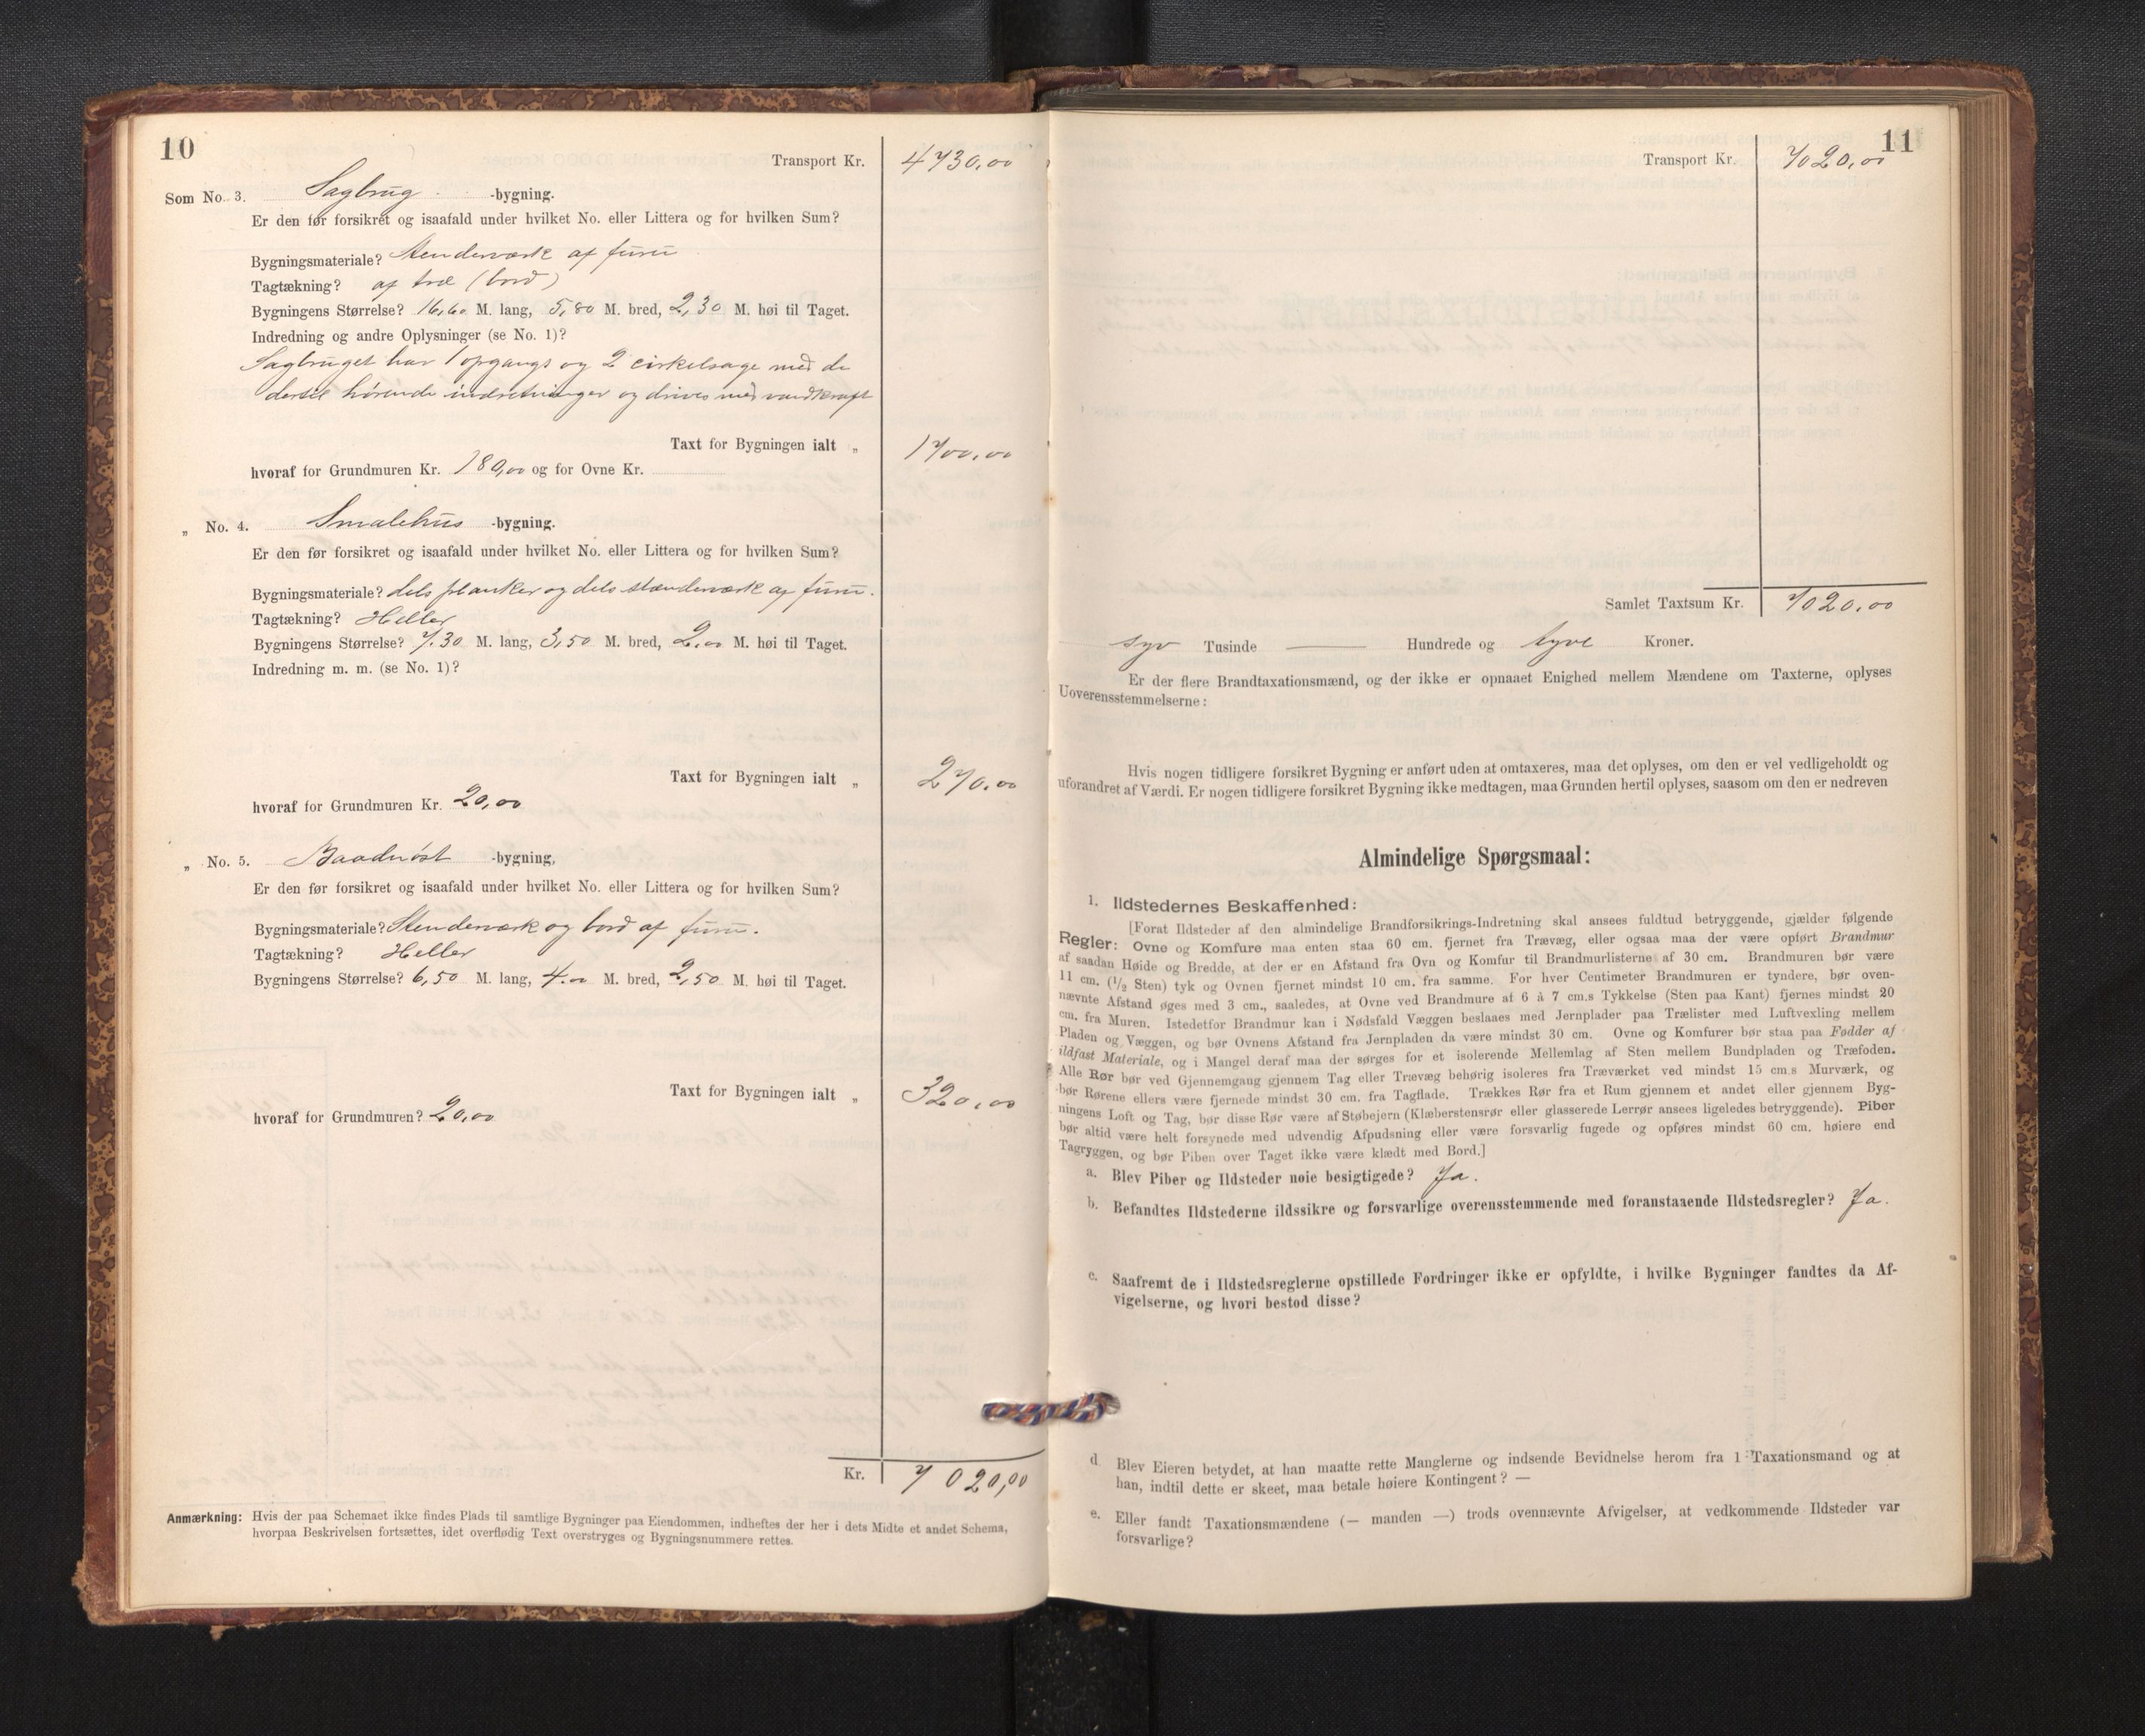 10
Transport Kr. 4730,00
Som No. 3. Sagbrug -bygning.
Er den før forsikret og isaafald under hvilket No. eller Littera og for hvilken Sum?
Bygningsmateriale? Stenderværk af furu
Tagtækning? af træ (bord)
Bygningens Størrelse? 16,60 M. lang, 5,80 M. bred, 2,30 M. høi til Taget.
Indredning og andre Oplysninger (se No. 1)?
Sagbruget har 1 opgangs og 2 cirkelsage med de
dertil hørende indretninger og drives med vandkraft
Taxt for Bygningen ialt „ 1700,00
hvoraf for Grundmuren Kr. 180,00 og for Ovne Kr.
„ No. 4. Smalehus -bygning.
Er den før forsikret og isaafald under hvilket No. eller Littera og for hvilken Sum?
Bygningsmateriale? dels planker og dels stenderværk af furu.
Tagtækning? Heller
Bygningens Størrelse? 7.30 M. lang, 3,50 M. bred, 2,00 M. høi til Taget.
Indredning m. m. (se No. 1)?
Taxt for Bygningen ialt „ 270,00
hvoraf for Grundmuren Kr. 20,00
„ No. 5. Baadnøst -bygning,
Er den før forsikret og isaafald under hvilket No. eller Littera og for hvilken Sum?
Bygningsmateriale? Stenderværk og bord af furu.
Tagtækning? Heller
Bygningens Størrelse? 6,50 M. lang, 4.00 M. bred, 2,50 M. høi til Taget.
Taxt for Bygningen ialt „ 320,00
hvoraf for Grundmuren? 20,00
Kr. 7020,00
Anmærkning: Hvis der paa Schemaet ikke findes Plads til samtlige Bygninger paa Eiendommen, indheftes der her i dets Midte et andet Schema,
hvorpaa Beskrivelsen fortsættes, idet overflødig Text overstryges og Bygningsnummere rettes.
11
Transport Kr. 7020,00
Samlet Taxtsum Kr. 7020,00
syv Tusinde — Hundrede og tyve Kroner.
Er der flere Brandtaxationsmænd, og der ikke er opnaaet Enighed mellem Mændene om Taxterne, oplyses
Uoverensstemmelserne:
Hvis nogen tidligere forsikret Bygning er anført uden at omtaxeres, maa det oplyses, om den er vel vedligeholdt og
uforandret af Værdi. Er nogen tidligere forsikret Bygning ikke medtagen, maa Grunden hertil oplyses, saasom om den er nedreven
Almindelige Spørgsmaal:
1. Ildstedernes Beskaffenhed:
[Forat Ildsteder af den almindelige Brandforsikrings-Indretning skal ansees fuldtud betryggende, gjælder følgende
Regler: Ovne og Komfure maa enten staa 60 cm. fjernet fra Trævæg, eller ogsaa maa der være opført Brandmur
af saadan Høide og Bredde, at der er en Afstand fra Ovn og Komfur til Brandmurlisterne af 30 cm. Brandmuren bør være
11 cm. (1/2 Sten) tyk og Ovnen fjernet mindst 10 cm. fra samme. For hver Centimeter Brandmuren er tyndere, bør oven-
nævnte Afstand øges med 3 cm., saaledes, at Ovne ved Brandmure af 6 à 7 cm.s Tykkelse (Sten paa Kant) fjernes mindst 20
cm. fra Muren. Istedetfor Brandmur kan i Nødsfald Væggen beslaaes med Jernplader paa Trælister med Luftvexling mellem
Pladen og Væggen, og bør Ovnens Afstand fra Jernpladen da være mindst 30 cm. Ovne og Komfurer bør staa paa Fødder af
ildfast Materiale, og i Mangel deraf maa der sørges for et isolerende Mellemlag af Sten mellem Bundpladen og Træfoden.
Alle Rør bør ved Gjennemgang gjennem Tag eller Trævæg behørig isoleres fra Træværket ved mindst 15 cm.s Murværk, og
bør Rørene ellers være fjernede mindst 30 cm. fra Tagflade. Trækkes Rør fra et Rum gjennem et andet eller gjennem Byg-
ningens Loft og Tag, bør disse Rør være af Støbejern (Klæberstensrør eller glasserede Lerrør ansees ligeledes betryggende). Piber
bør altid være helt forsynede med udvendig Afpudsning eller være forsvarlig fugede og opføres mindst 60 cm. høiere end
Tagryggen, og bør Piben over Taget ikke være klædt med Bord.]
a. Blev Piber og Ildsteder nøie besigtigede? Ja.
b. Befandtes Ildstederne ildssikre og forsvarlige overensstemmende med foranstaaende Ildstedsregler? Ja.
c. Saafremt de i Ildstedsreglerne opstillede Fordringer ikke er opfyldte, i hvilke Bygninger fandtes da Af-
vigelserne, og hvori bestod disse?
d. Blev Eieren betydet, at han maatte rette Manglerne og indsende Bevidnelse herom fra 1 Taxationsmand og at
han, indtil dette er skeet, maa betale høiere Kontingent? —
e. Eller fandt Taxationsmændene (— manden —) trods ovennævnte Afvigelser, at vedkommende Ildsteder var
forsvarlige?